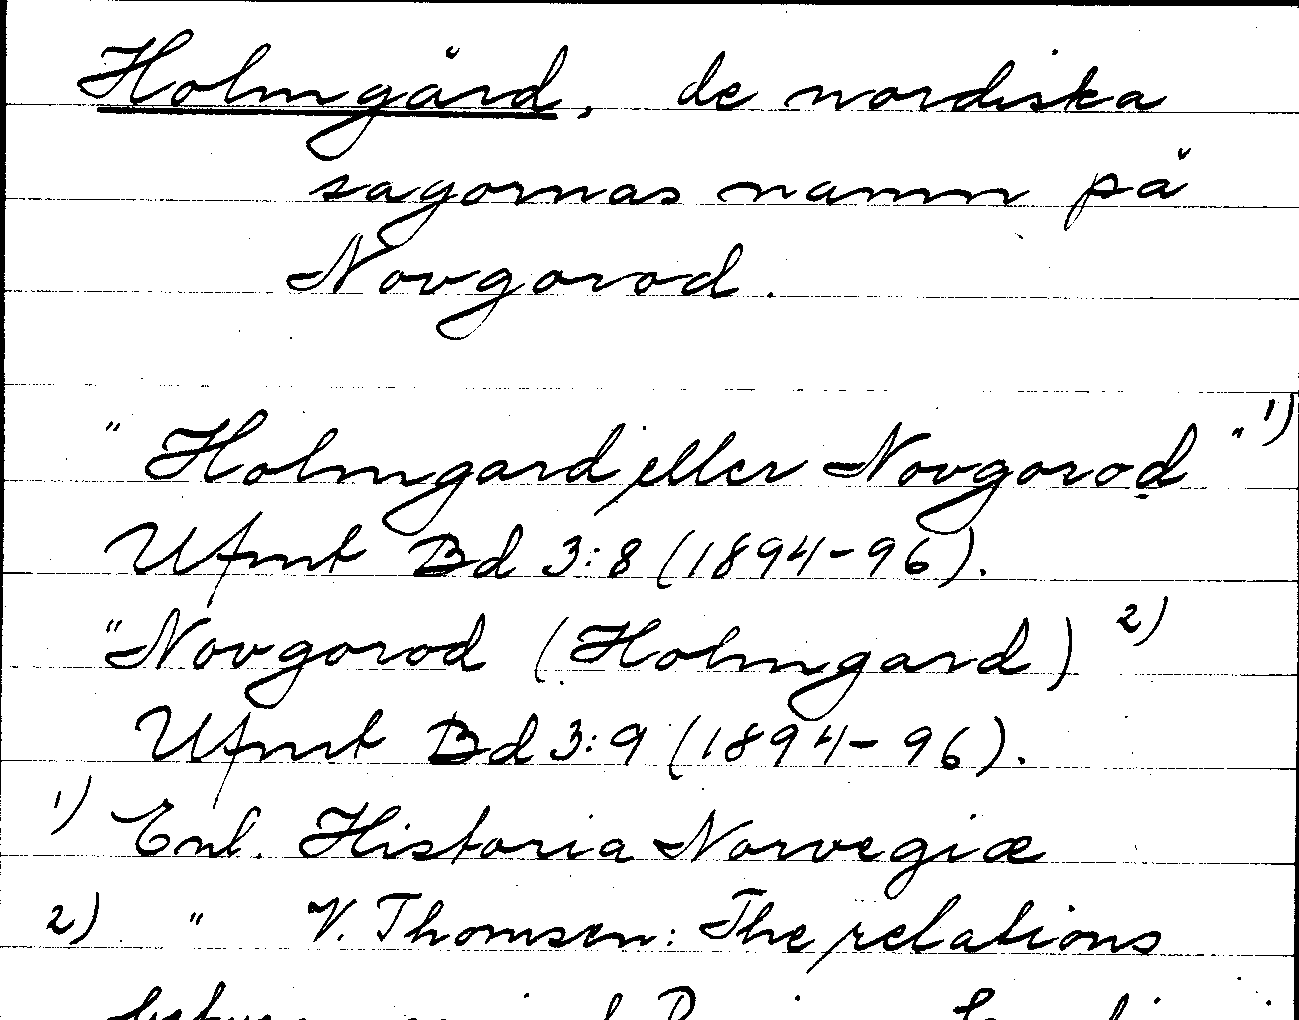 Holmgård, de nordiska
sagornas namn på
Novgorod.
"Holmgard eller Novgorod" 1)
Ufmt Bd 3:8 (1894-96).
"Novgorod (Holmgard) 2)
Ufmt Bd 3:9 (1894-96).
1) Enl. Historia Norvegiæ
2) " V. Thomsen: The relations